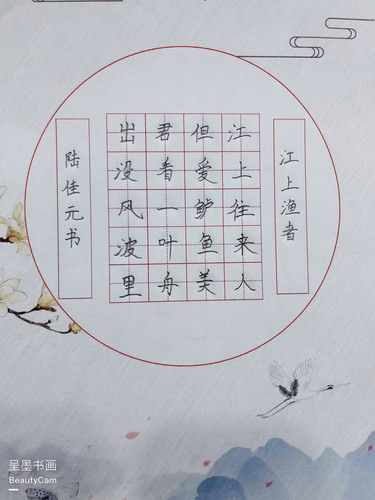 江上渔者
江上往来人
但爱鲈鱼美
君看一叶舟
出没风波里
陆佳元书
呈墨书画
BeautyCam